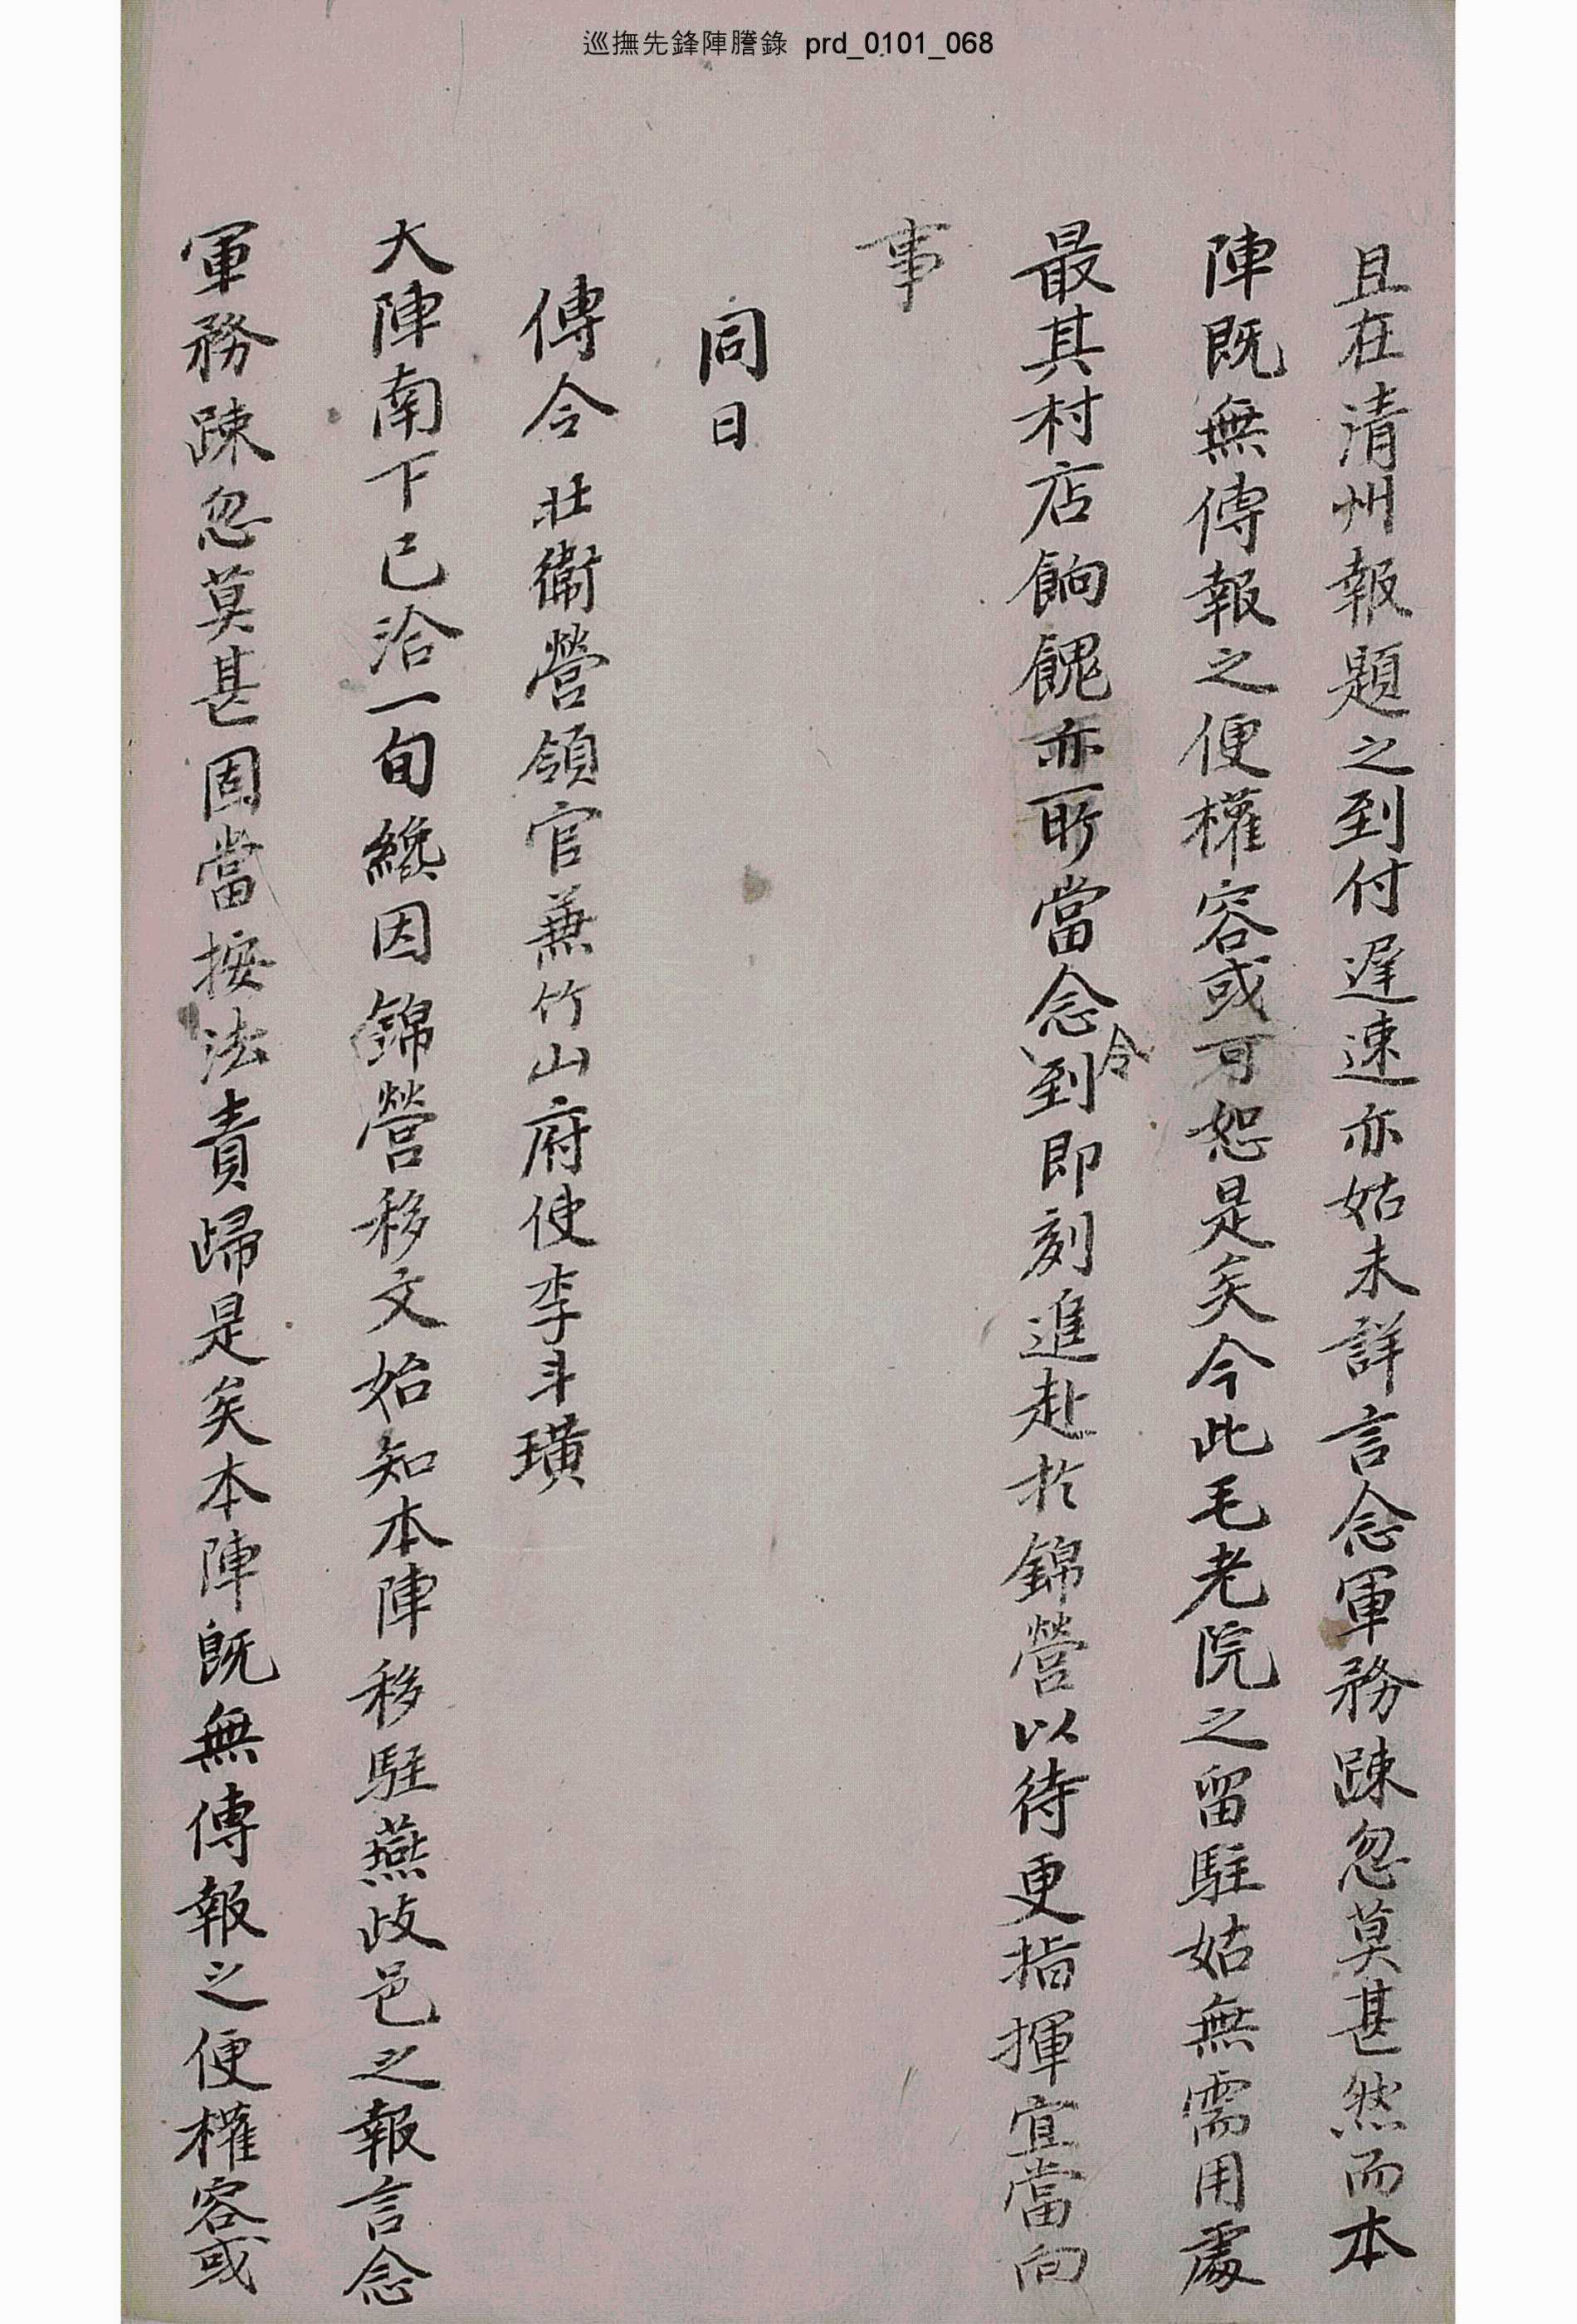 巡撫先鋒陣謄錄 prd_0101_068
且在清州報題之到付遲速亦姑未詳言念軍務踈忽莫甚然而本
陣既無傳報之便權容或可恕是矣今此毛老院之留駐姑無需用處
最其村店餉餽亦所當念令到卽刻進赴於錦營以待更指揮宜當向
事
同日
傳令 壯衛營領官兼竹山府使李斗璜
大陣南下已洽一旬纔因錦營移文始知本陣移駐燕歧邑之報言念
軍務踈忽莫甚固當按法責歸是矣本陣旣無傳報之便權容或